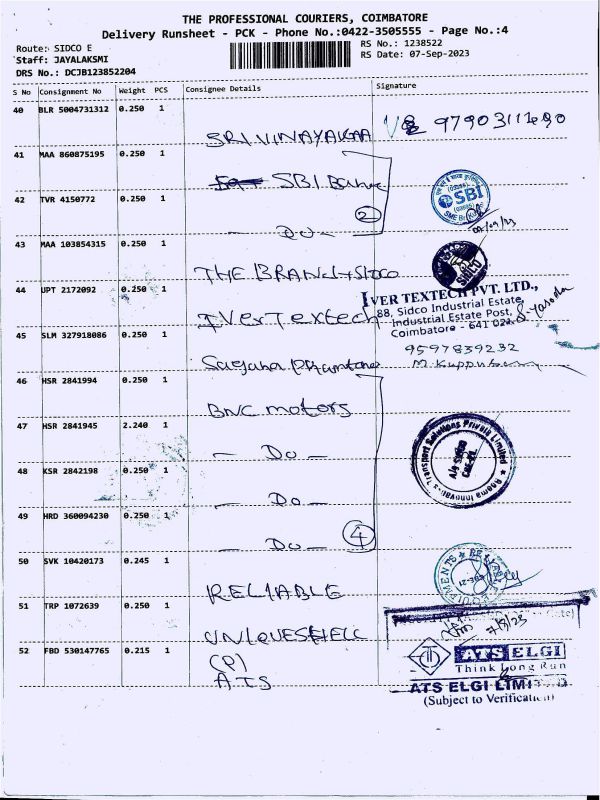 THE PROFESSIONAL COURIERS, COIMBATORE
Delivery Runsheet - PCK - Phone No.:0422-3505555 - Page No.:4
Route: SIDCO E
RS No.: 1238522
Staff: JAYALAKSMI
RS Date: 07-Sep-2023
DRS No.: DCJB123852204
S No Consignment No Weight PCS Consignee Details Signature
40 BLR 5004731312 0.250 1
SRI VINAYAKAA
41 MAA 860875195 0.250 1
SBI Bank
SBI
42 TVR 4150772 0.250 1
— Do — 2
43 MAA 103854315 0.250 1
THE BRAND SIDCO
44 UPT 2172092 .250 1
IVER TEXTECH PVT. LTD.,
88, Sidco Industrial Estate,
Industrial Estate Post,
Coimbatore - 641 021.
IVer Textech
45 SLM 327918086 0.250 1
9597839232
46 HSR 2841994 0.250 1
BNC motors
47 HSR 2841945 2.240 1
— Do —
48 KSR 2842198 0.250 1
— Do —
49 HRD 360094230 0.250 1
— Do — 4
50 SVK 10420173 0.245 1
RELIABLE
51 TRP 1072639 0.250 1
UNIQUESHELL
(P)
52 FBD 530147765 0.215 1
ATS
ATS ELGI
Think Long Run
ATS ELGI LIMITED
(Subject to Verification)